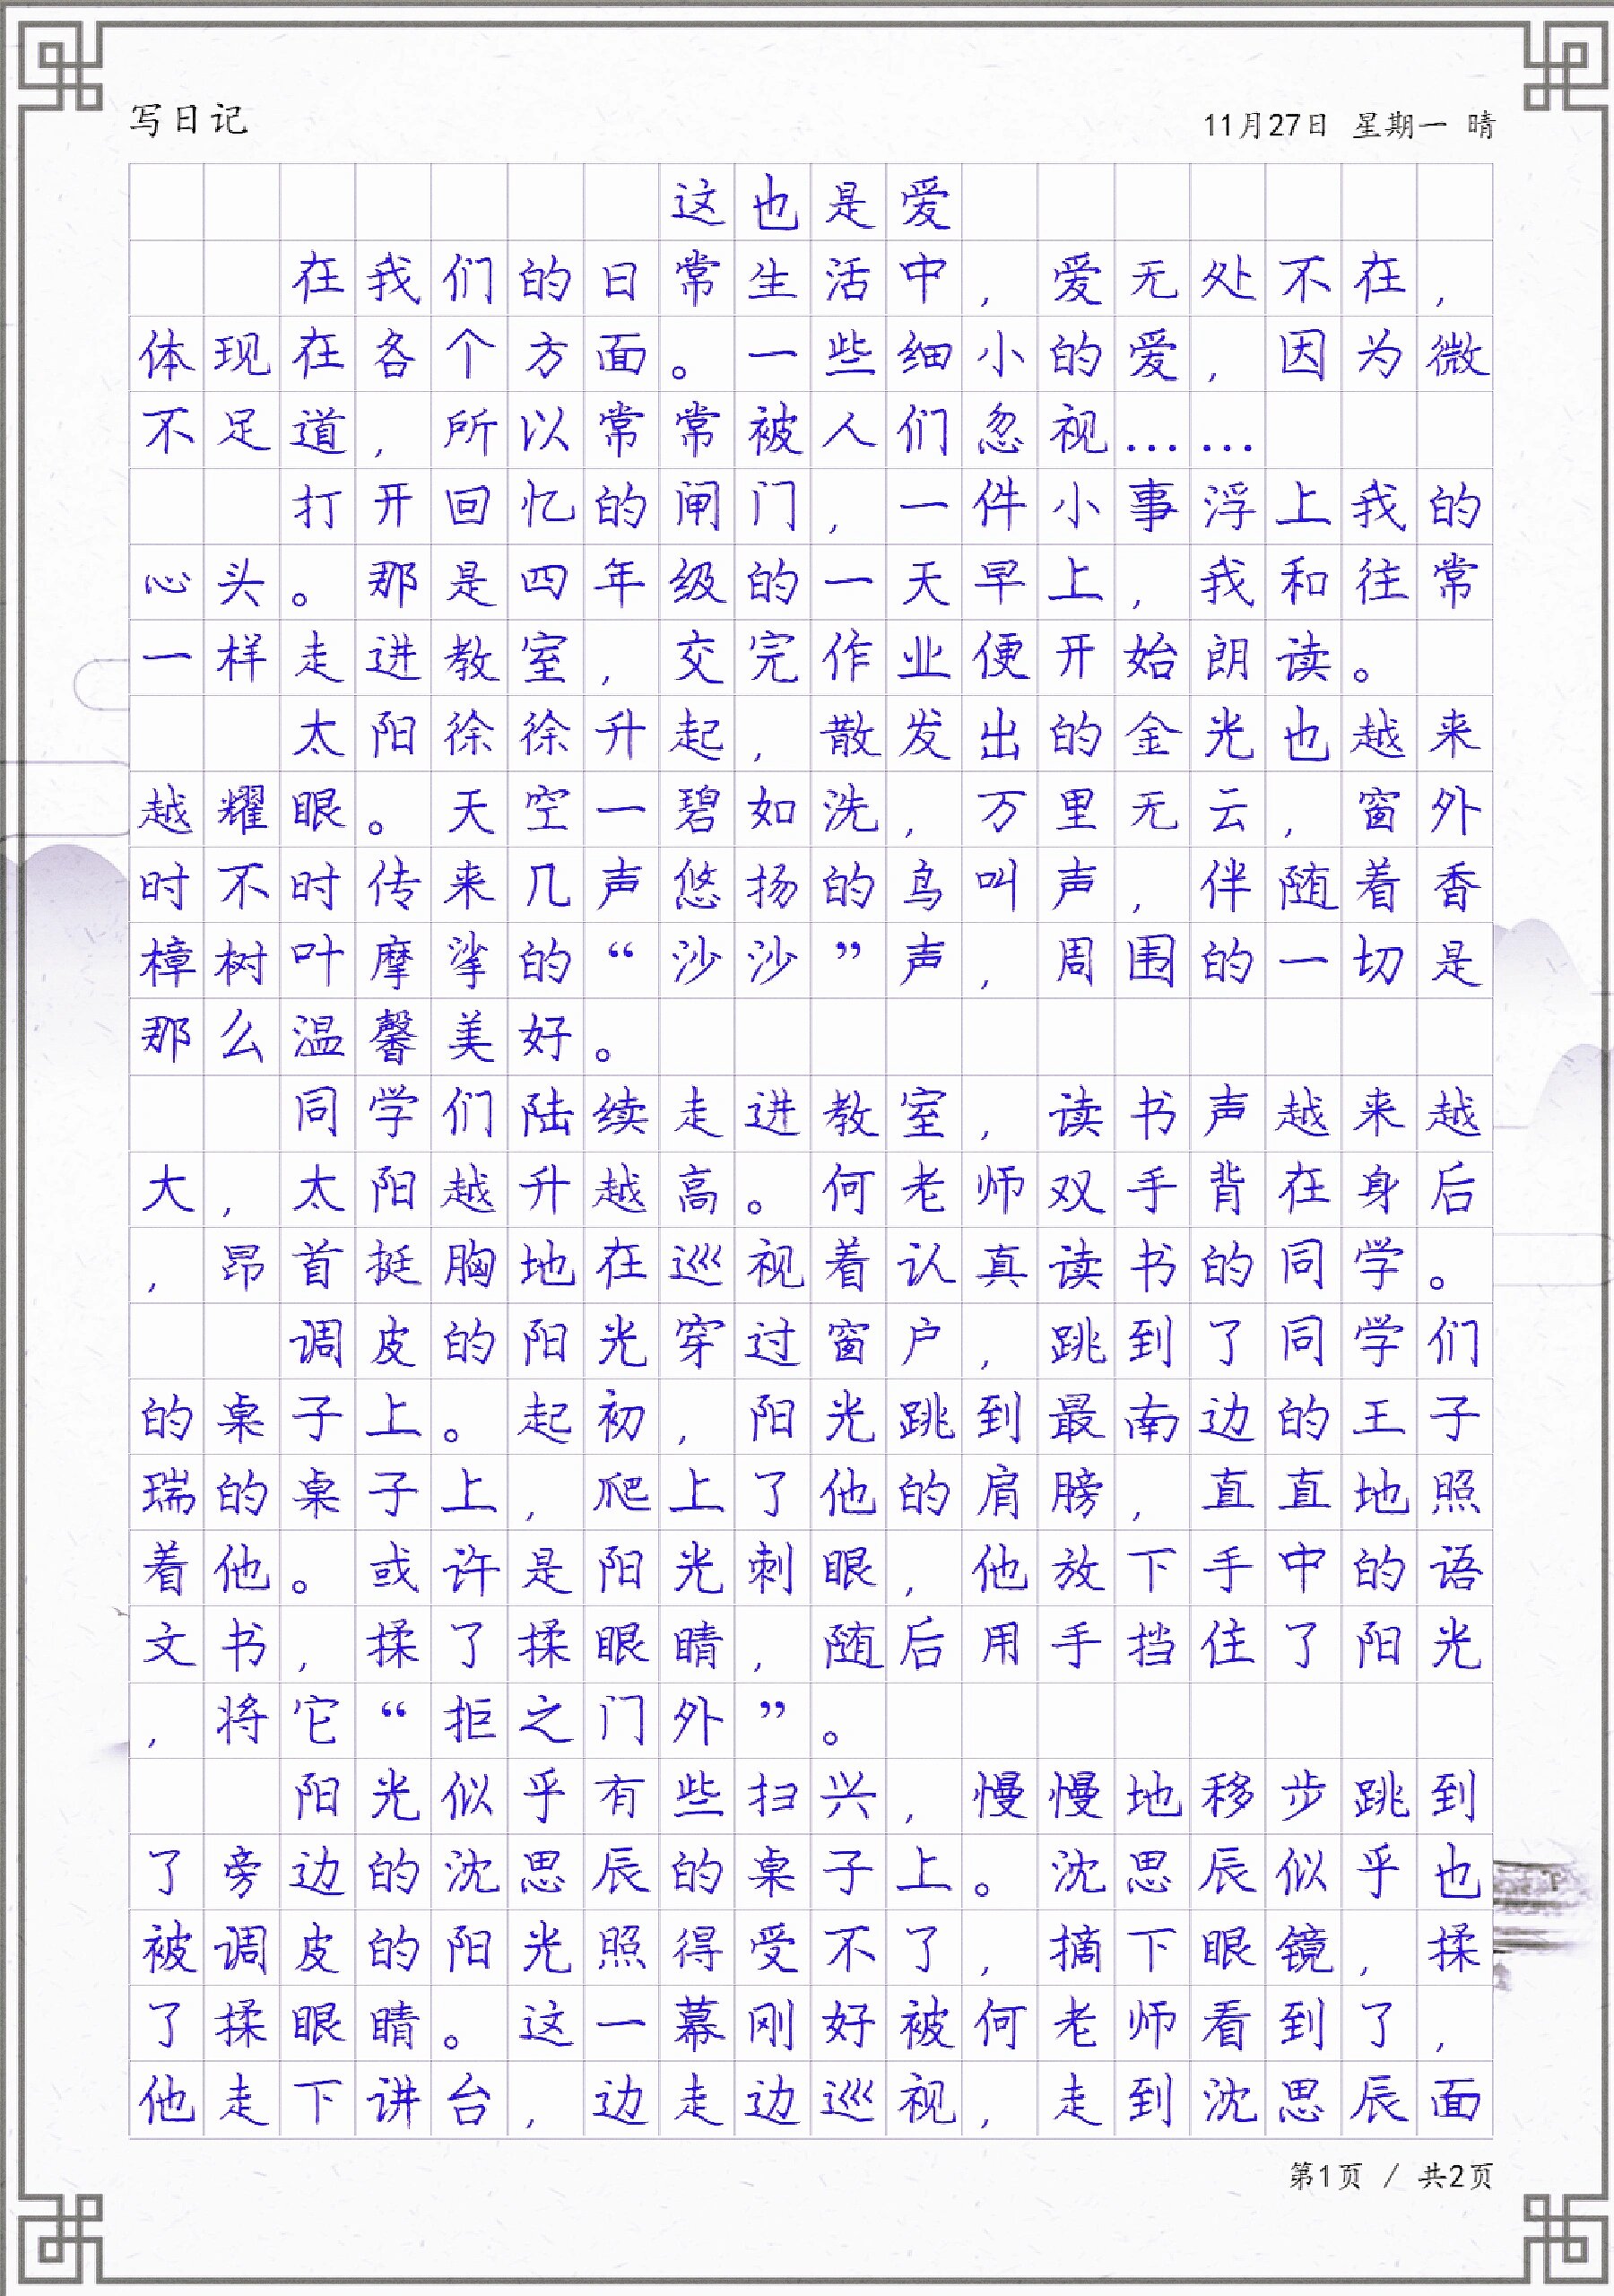 写日记
11月27日 星期一 晴
这也是爱
在我们的日常生活中，爱无处不在，
体现在各个方面。一些细小的爱，因为微
不足道，所以常常被人们忽视……
打开回忆的闸门，一件小事浮上我的
心头。那是四年级的一天早上，我和往常
一样走进教室，交完作业便开始朗读。
太阳徐徐升起，散发出的金光也越来
越耀眼。天空一碧如洗，万里无云，窗外
时不时传来几声悠扬的鸟叫声，伴随着香
樟树叶摩挲的“沙沙”声，周围的一切是
那么温馨美好。
同学们陆续走进教室，读书声越来越
大，太阳越升越高。何老师双手背在身后
，昂首挺胸地在巡视着认真读书的同学。
调皮的阳光穿过窗户，跳到了同学们
的桌子上。起初，阳光跳到最南边的王子
瑞的桌子上，爬上了他的肩膀，直直地照
着他。或许是阳光刺眼，他放下手中的语
文书，揉了揉眼睛，随后用手挡住了阳光
，将它“拒之门外”。
阳光似乎有些扫兴，慢慢地移步跳到
了旁边的沈思辰的桌子上。沈思辰似乎也
被调皮的阳光照得受不了，摘下眼镜，揉
了揉眼睛。这一幕刚好被何老师看到了，
他走下讲台，边走边巡视，走到沈思辰面
第1页 / 共2页